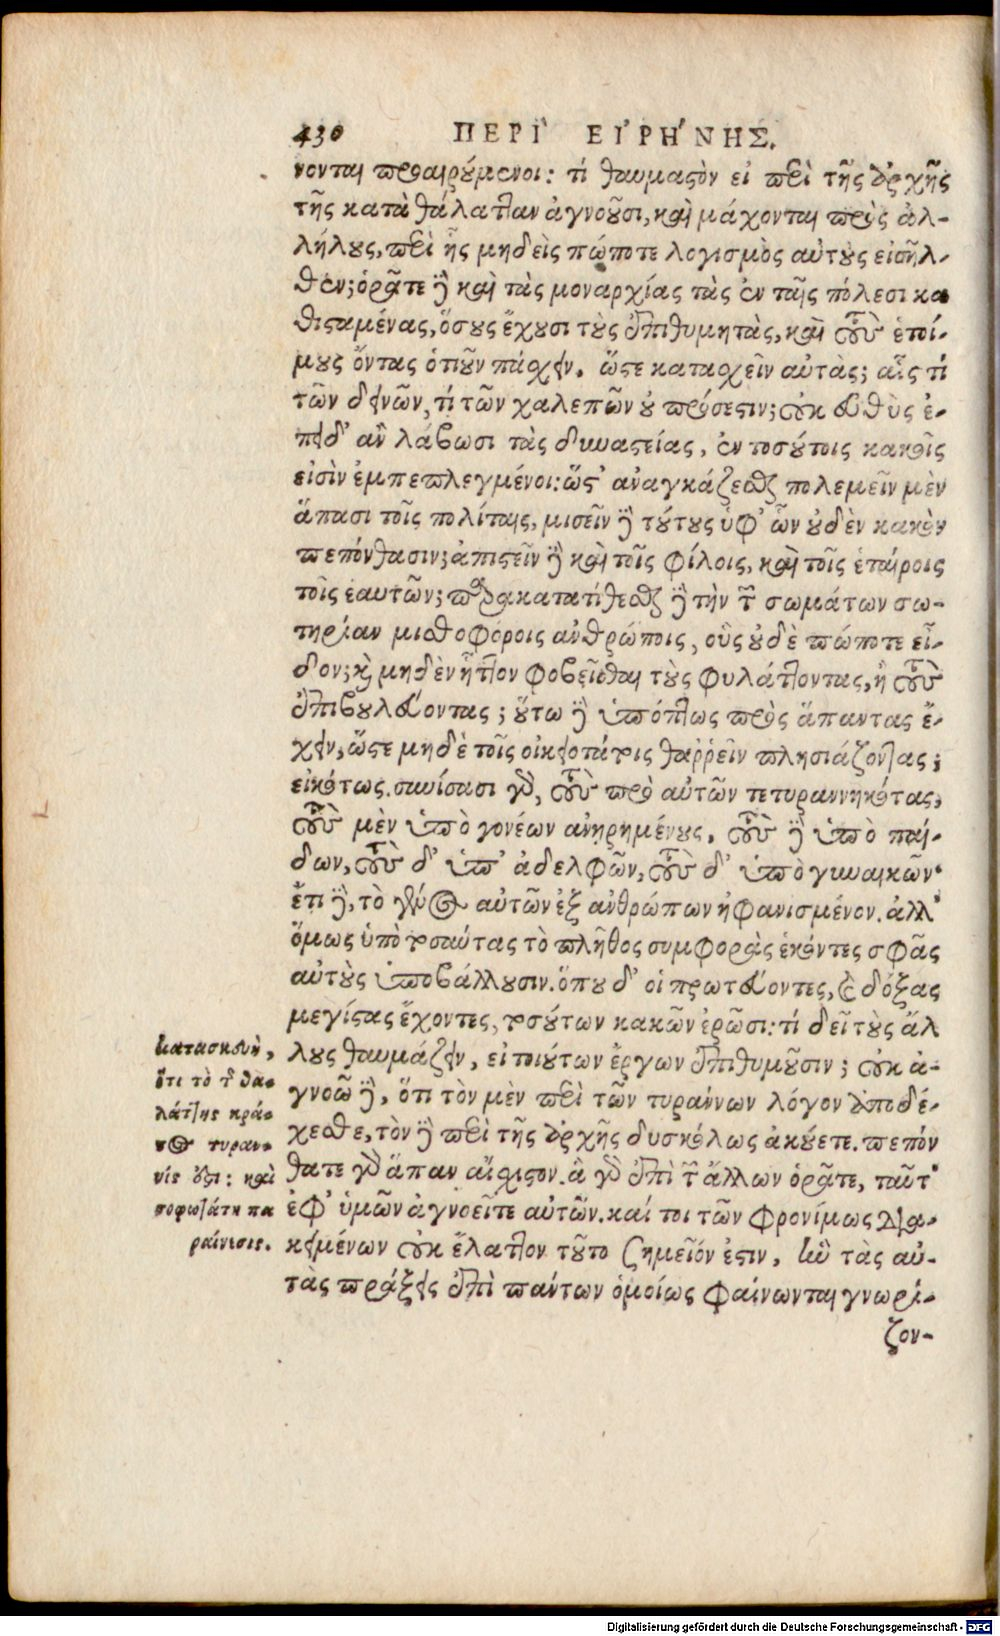 430 ΠΕΡῚ ΕἸΡΉΝΗΣ.
νονται προαιρούμενοι: τί θαυμαστὸν εἰ περὶ τῆς ἀρχῆς
τῆς κατὰ θάλατταν ἀγνοοῦσι, καὶ μάχονται πρὸς ἀλ-
λήλους, περὶ ἧς μηδεὶς πώποτε λογισμὸς αὐτοὺς εἰσῆλ-
θεν; ὁρᾶτε δὲ καὶ τὰς μοναρχίας τὰς ἐν ταῖς πόλεσι κα
θισταμένας, ὅσους ἔχουσι τοὺς ἐπιθυμητὰς, καὶ τοὺς ἑτοί-
μους ὄντας ὁτιοῦν πάσχειν. ὥστε κατασχεῖν αὐτὰς; αἷς τί
τῶν δεινῶν, τί τῶν χαλεπῶν οὐ πρόσεστιν; οὐκ εὐθὺς ἐ-
πειδ' ἂν λάβωσι τὰς δυναστείας, ἐν τοσούτοις κακοῖς
εἰσὶν ἐμπεπλεγμένοι: ὥστ' ἀναγκάζεσθαι πολεμεῖν μὲν
ἅπασι τοῖς πολίταις, μισεῖν δὲ τούτους ὑφ' ὧν οὐδὲν κακὸν
πεπόνθασιν; ἀπιστεῖν δὲ καὶ τοῖς φίλοις, καὶ τοῖς ἑταίροις
τοῖς ἑαυτῶν; παρακατατίθεσθαι δὲ τὴν τῶν σωμάτων σω-
τηρίαν μισθοφόροις ἀνθρώποις, οὓς οὐδὲ πώποτε εἶ-
δον; καὶ μηδὲν ἧττον φοβεῖσθαι τοὺς φυλάττοντας, ἢ τοὺς
ἐπιβουλεύοντας; οὕτω δὲ ὑπόπτως πρὸς ἅπαντας ἔ-
χειν, ὥστε μηδὲ τοῖς οἰκειοτάτοις θαῤῥεῖν πλησιάζοντας;
εἰκότως. συνίσασι γὰρ, τοὺς πρὸ αὐτῶν τετυραννηκότας,
τοὺς μὲν ὑπὸ γονέων ἀνῃρημένους, τοὺς δὲ ὑπὸ παί-
δων, τοὺς δ' ὑπ' ἀδελφῶν, τοὺς δ' ὑπὸ γυναικῶν·
ἔτι δὲ, τὸ γένος αὐτῶν ἐξ ἀνθρώπων ἠφανισμένον. ἀλλ'
ὅμως ὑπὸ τοσαύτας τὸ πλῆθος συμφορὰς ἑκόντες σφᾶς
αὐτοὺς ὑποβάλλουσιν. ὅπου δ' οἱ πρωτεύοντες, καὶ δόξας
μεγίστας ἔχοντες, τοσούτων κακῶν ἐρῶσι: τί δεῖ τοὺς ἄλ
λους θαυμάζειν, εἰ τοιούτων ἔργων ἐπιθυμοῦσιν; οὐκ ἀ-
γνοῶ δὲ, ὅτι τὸν μὲν περὶ τῶν τυράννων λόγον ἀποδέ-
χεσθε, τὸν δὲ περὶ τῆς ἀρχῆς δυσκόλως ἀκούετε. πεπόν
θατε γὰρ ἅπαν αἴσχιστον. ἃ γὰρ ἐπὶ τῶν ἄλλων ὁρᾶτε, ταῦτ'
ἐφ' ὑμῶν ἀγνοεῖτε αὐτῶν. καί τοι τῶν φρονίμως δια-
κειμένων οὐκ ἔλαττον τοῦτο σημεῖόν ἐστιν, ἢν τὰς αὐ-
τὰς πράξεις ἐπὶ πάντων ὁμοίως φαίνωνται γνωρί-
ζον-
κατασκευὴ,
ὅτι τὸ τῆς θα-
λάττης κρά-
τος τυραν-
νίς ἐστι: καὶ
σοφωτάτη πα
ραίνεσις.
Digitalisierung gefördert durch die Deutsche Forschungsgemeinschaft - DFG